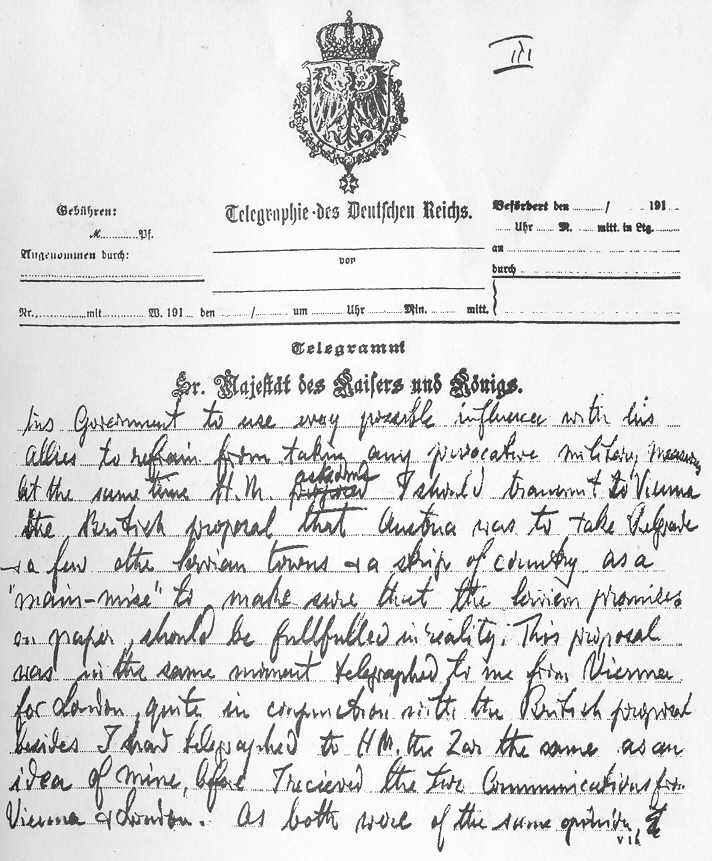 III
Gebühren:
Telegraphie des Deutschen Reichs.
Befördert den / 191
M. Pf.
Uhr M. mitt. in Ltg.
Angenommen durch:
an
vor
durch
Nr. mit W. 191 den / um Uhr Min. mitt.
Telegramm
Sr. Majestät des Kaisers und Königs.
his Government to use every possible influence with his
allies to refrain from taking any provocative military measures
asked me
At the same time H.M. proposed I should transmit to Vienna
the British proposal that Austria was to take Belgrade
+ a few other Servian towns + a strip of country as a
"main-mise" to make sure that the Servian promises
on paper should be fullfulled in reality. This proposal
was in the same moment telegraphed to me from Vienna
for London, quite in conjunction with the British proposal
besides I had telegraphed to H.M. the Zar the same as an
idea of mine, before I recieved the two Communications from
Vienna + London. As both were of the same opinion,